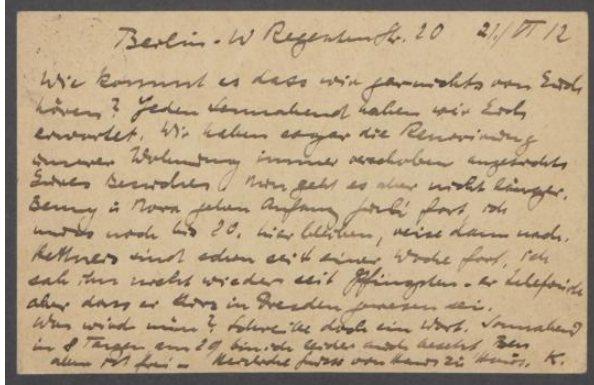 Berlin-W Regentenstr. 20 21./VI 12
Wie kommt es dass wir garnichts von Euch
hören? Jeden Sonnabend haben wir Euch
erwartet. Wir haben sogar die Renovierung
unserer Wohnung immer verschoben angesichts
Eures Besuches Nun geht es aber nicht länger.
Benny u Nora gehen Anfang Juli fort, ich
muss noch bis 20. hier bleiben, reise dann nach.
sind schon seit einer Woche fort, ich
sah ihn nicht wieder seit Pfingsten - er telefonirte
aber dass er in Dresden gewesen sei.
Was wird nun? Schreibe doch ein Wort. Sonnabend
in 8 Tagen am 29 bin ich leider auch besetzt
frei - Herzliche Grüsse von Haus zu Haus. K.